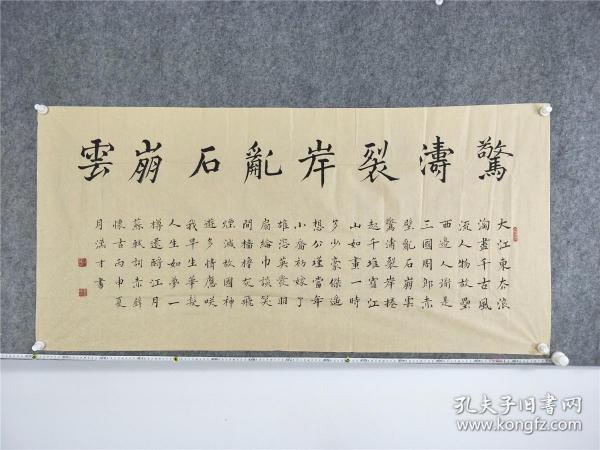 驚濤裂岸亂石崩雲
大江東去浪
淘盡千古風
流人物故壘
西邊人道是
三國周郎赤
壁亂石崩雲
驚濤裂岸捲
起千堆雪江
山如畫一時
多少豪傑遙
想公瑾當年
小喬初嫁了
雄姿英發羽
扇綸巾談笑
間檣櫓灰飛
煙滅故國神
遊多情應咲
我早生華髮
人生如夢一
樽還酹江月
蘇軾詞赤壁
懷古丙申夏
月漢才書
孔夫子旧书网
www.kongfz.com